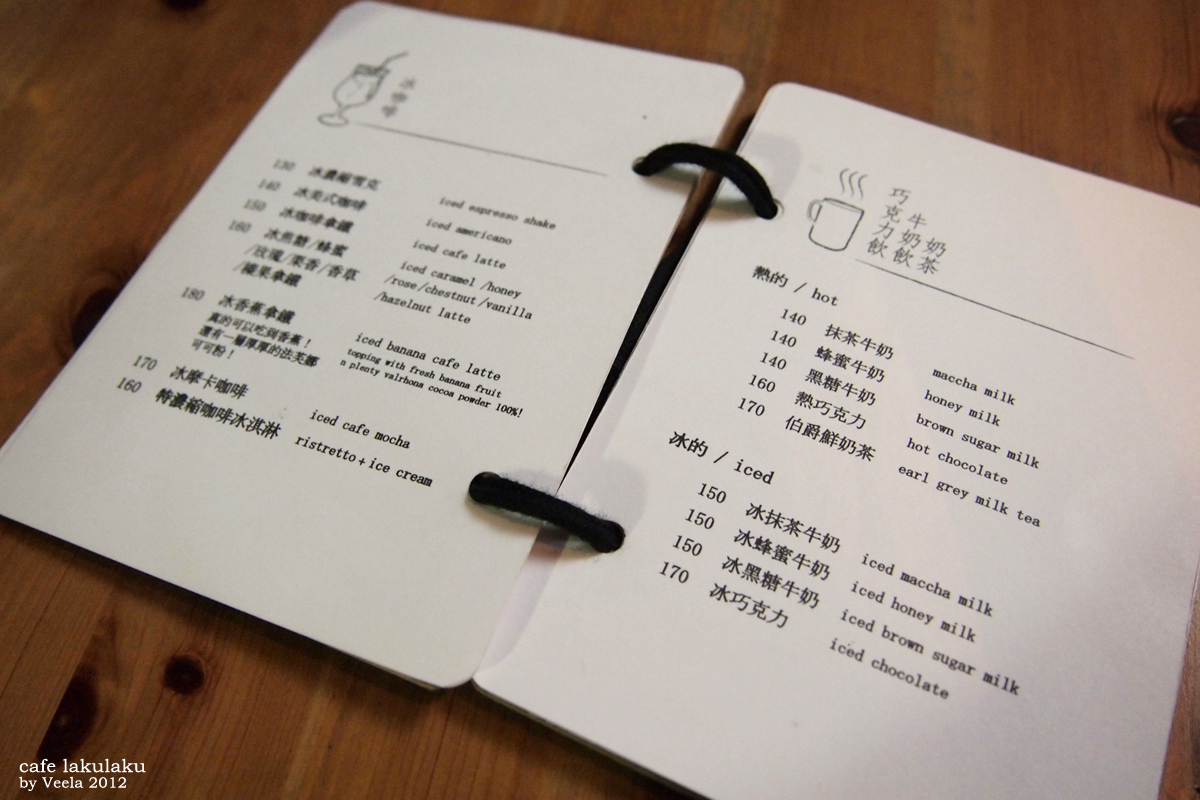 冰咖啡
130 冰濃縮雪克 iced espresso shake
140 冰美式咖啡 iced americano
150 冰咖啡拿鐵 iced cafe latte
160 冰焦糖/蜂蜜 iced caramel /honey
/玫瑰/栗香/香草 /rose/chestnut/vanilla
/榛果拿鐵 /hazelnut latte
180 冰香蕉拿鐵 iced banana cafe latte
真的可以吃到香蕉！ topping with fresh banana fruit
還有一層厚厚的法芙娜 n plenty valrhona cocoa powder 100%!
可可粉！
170 冰摩卡咖啡 iced cafe mocha
160 特濃縮咖啡冰淇淋 ristretto+ice cream
巧克力飲
牛奶飲
奶茶
熱的 / hot
140 抹茶牛奶 maccha milk
140 蜂蜜牛奶 honey milk
140 黑糖牛奶 brown sugar milk
160 熱巧克力 hot chocolate
170 伯爵鮮奶茶 earl grey milk tea
冰的 / iced
150 冰抹茶牛奶 iced maccha milk
150 冰蜂蜜牛奶 iced honey milk
150 冰黑糖牛奶 iced brown sugar milk
170 冰巧克力 iced chocolate
cafe lakulaku
by Veela 2012